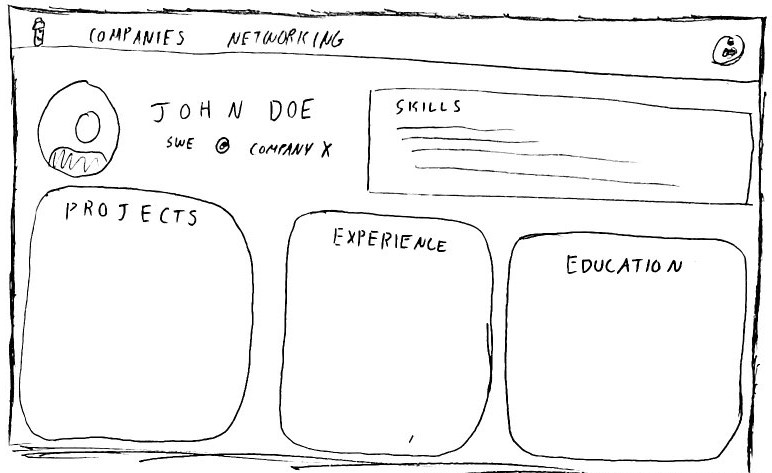 COMPANIES NETWORKING
JOHN DOE
SWE @ COMPANY X
SKILLS
PROJECTS
EXPERIENCE
EDUCATION